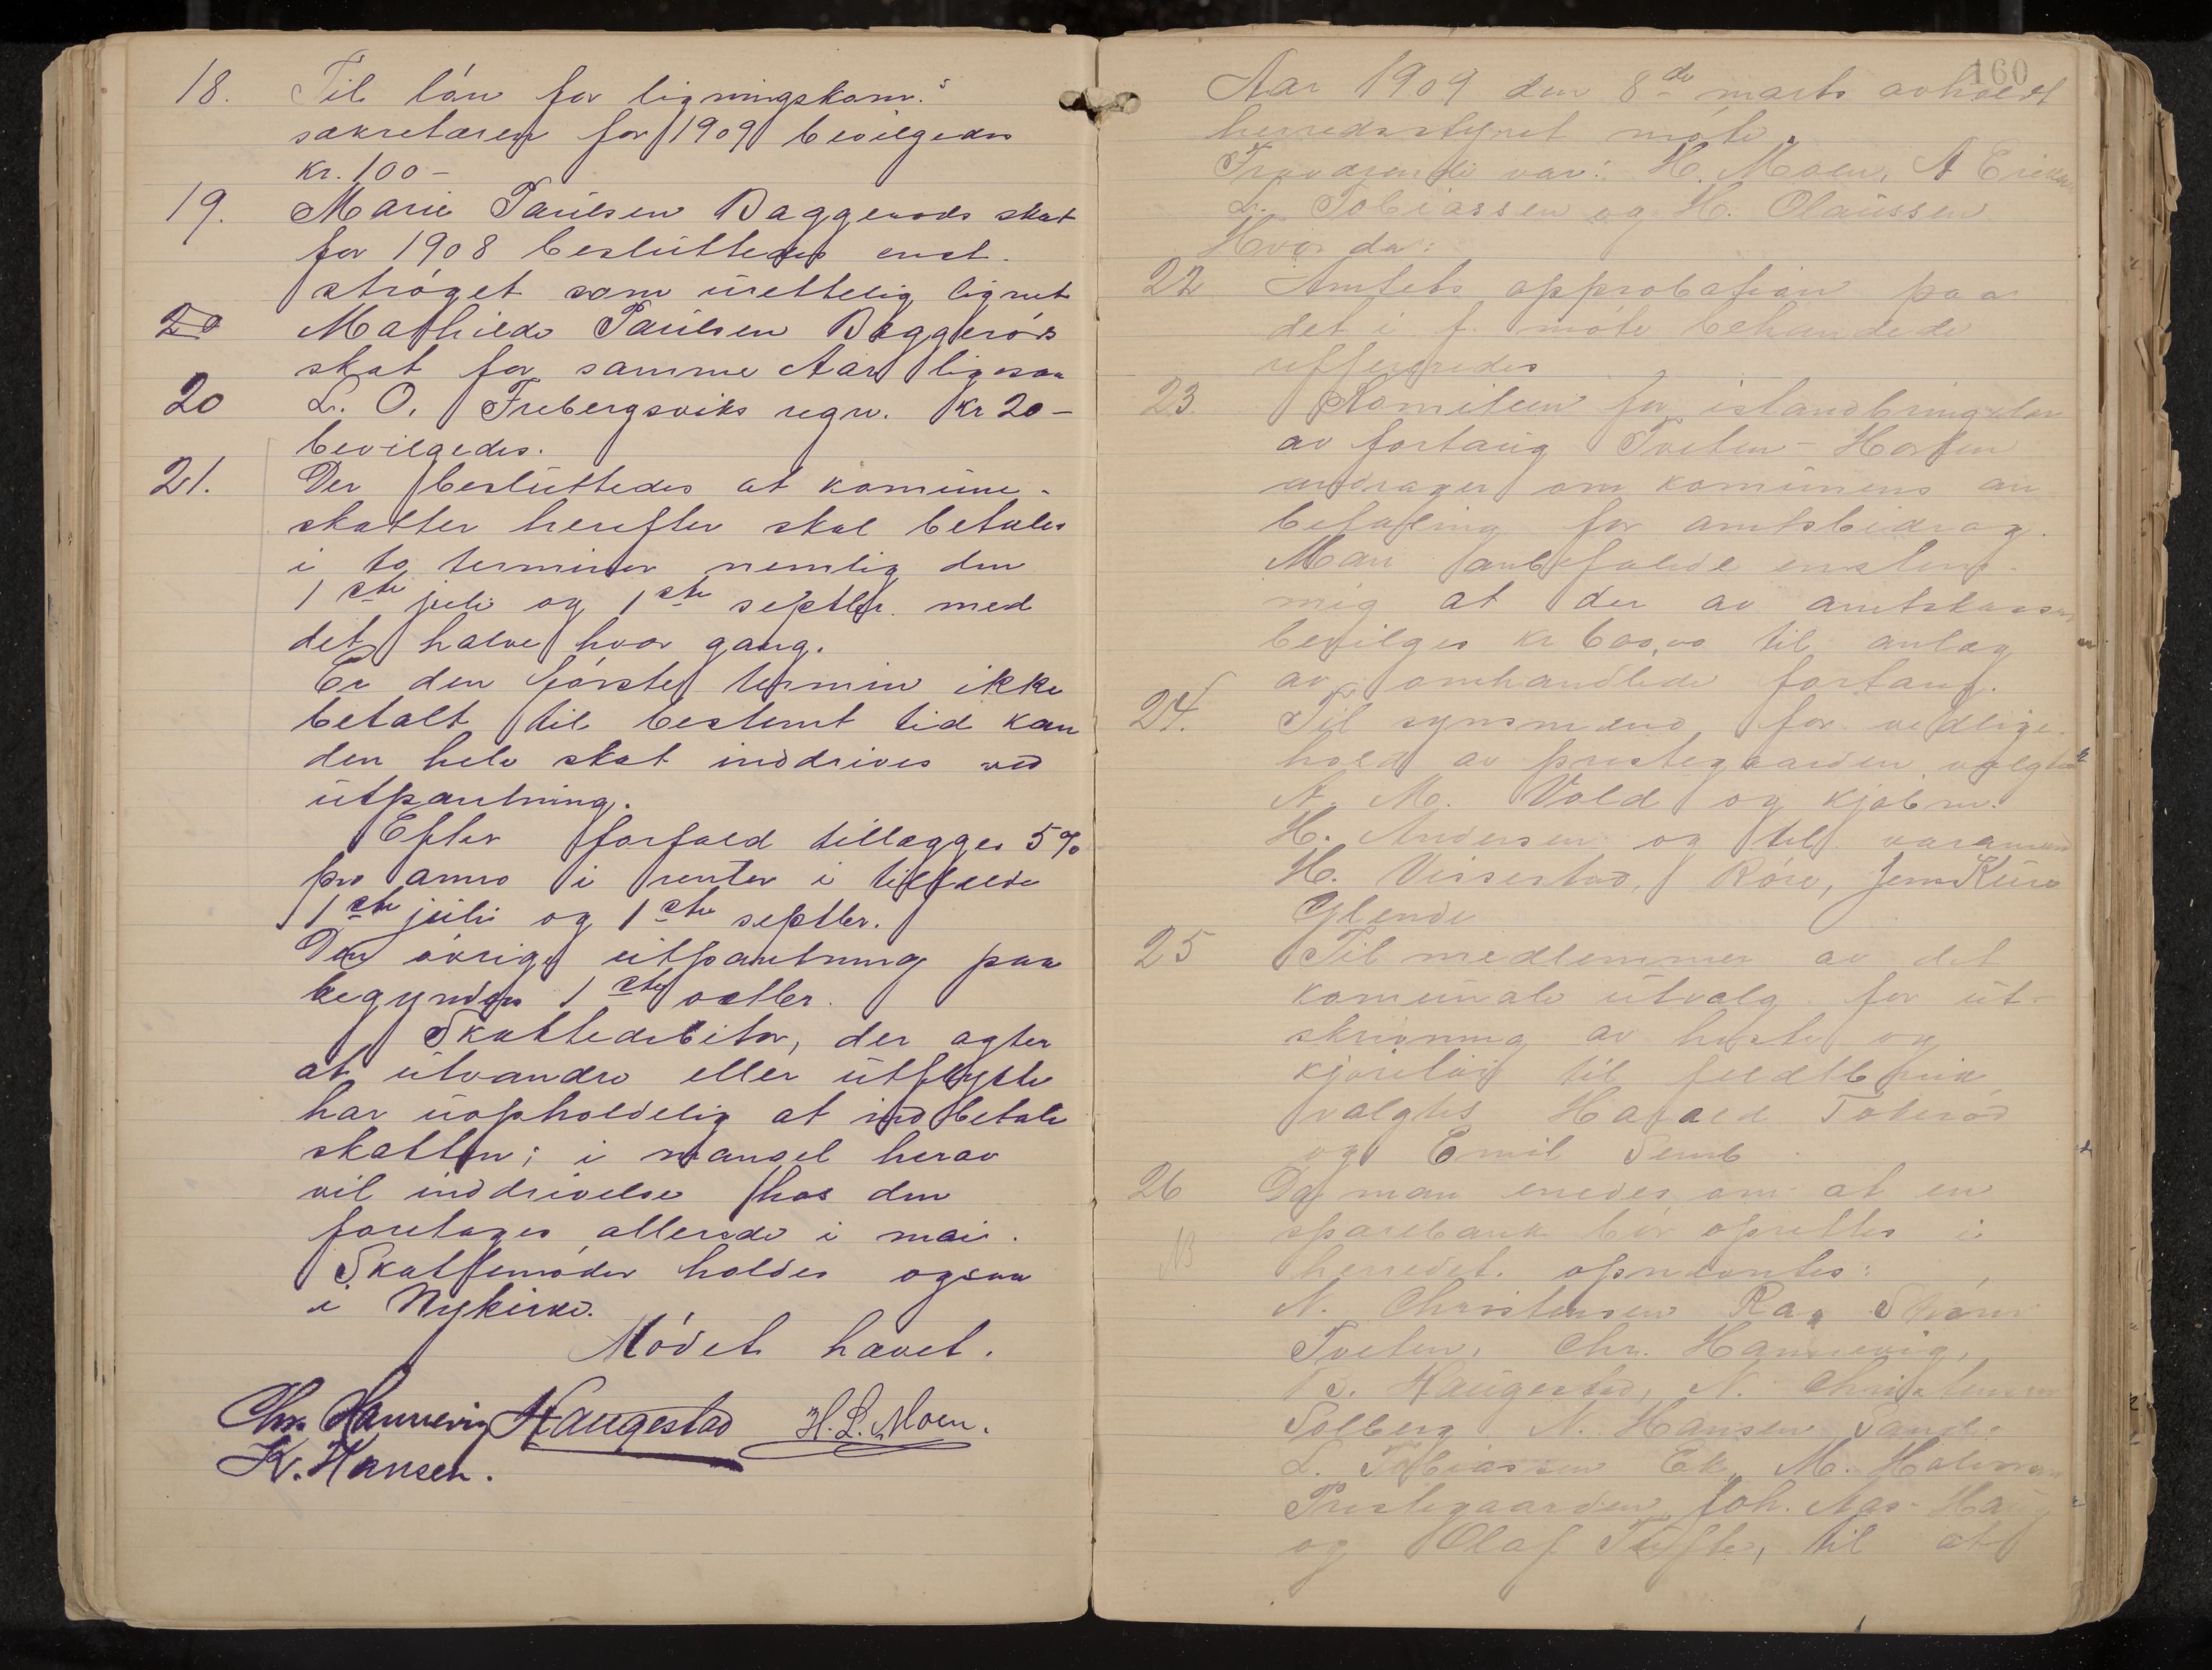 18. Til lón for ligningskom.s
sekretæren for 1909 bevilgedes
kr. 100-
19. Marie Paulsen Baggerøds skat
for 1908 besluttedes enst.
strøget som urettelig lignet
20 Mathilde Paulsen Baggerøds
skat for samme Aar ligesaa
20 L. O. Frebergsviks regn. kr 20-
bevilgedes.
21. Der besluttedes at komüne-
skatter herefter skal betales
i to terminer nemlig den
1ste juli og 1ste septbr. med
det halve hvor gang.
Er den første termin ikke
betalt til bestemt tid kan
den hele skat inddrives ved
utpantning.
Efter forfald tillægges 5%
pro anno i renter i tilfælde
1ste juli og 1ste septbr.
Den øvrige utpantning paa
begyndes 1ste octbr.
Skattedebitor, der agter
at utvandre eller utflytte
har uopholdelig at indbetale
skatten; i mangel herav
vil inddrivelse hos dem
foretages allerede i mai.
Skattemøder holdes ogsaa
i Nykirke.
Mødet hævet.
Chr. Hannevig Haugestad H. L. Moen.
K. Hansen.
160
Aar 1909 den 8de marts avholdt
herredsstyret møte.
Fraværende var: H. Moen, A Eriksen
L. Tobiassen og H. Olaussen
Hvor da:
22 Amtets approbation paa
det i f. møte behandlede
refereredes
23. Komiteen for istandbringelse
av fortaug Tveten-Horten
andrager om komünens an
befaling for amtsbidrag.
Man anbefalede enstem-
mig at der av amtskassen
bevilges kr 600,00 til anlæg
av omhandlede fortaug.
24. Til synsmænd for vedlige-
hold av prestegaarden valgtes
A. M. Vold og kjøbm.
H. Andersen og til varamænd
H. Vissestad, Røre, Jens Küre
Glende
25 Til medlemmer av det
komünale utvalg for ut-
skrivning av heste og
kjøretøi til feldtbruk
valgtes Harald Toterød
og Emil Semb
26 Da man enedes om at en
NB sparebank bør oprettes i
herredet. opnævntes:
N. Christensen Ra, Strøm
Tveten, Chr. Hannevig,
B. Haugestad, N. Christensen
Solberg N. Hansen Sand-
L. Tobiassen Ek, M. Holm
Prestegaarden, Joh. Aas- Haug
og Olaf Tufte, til at